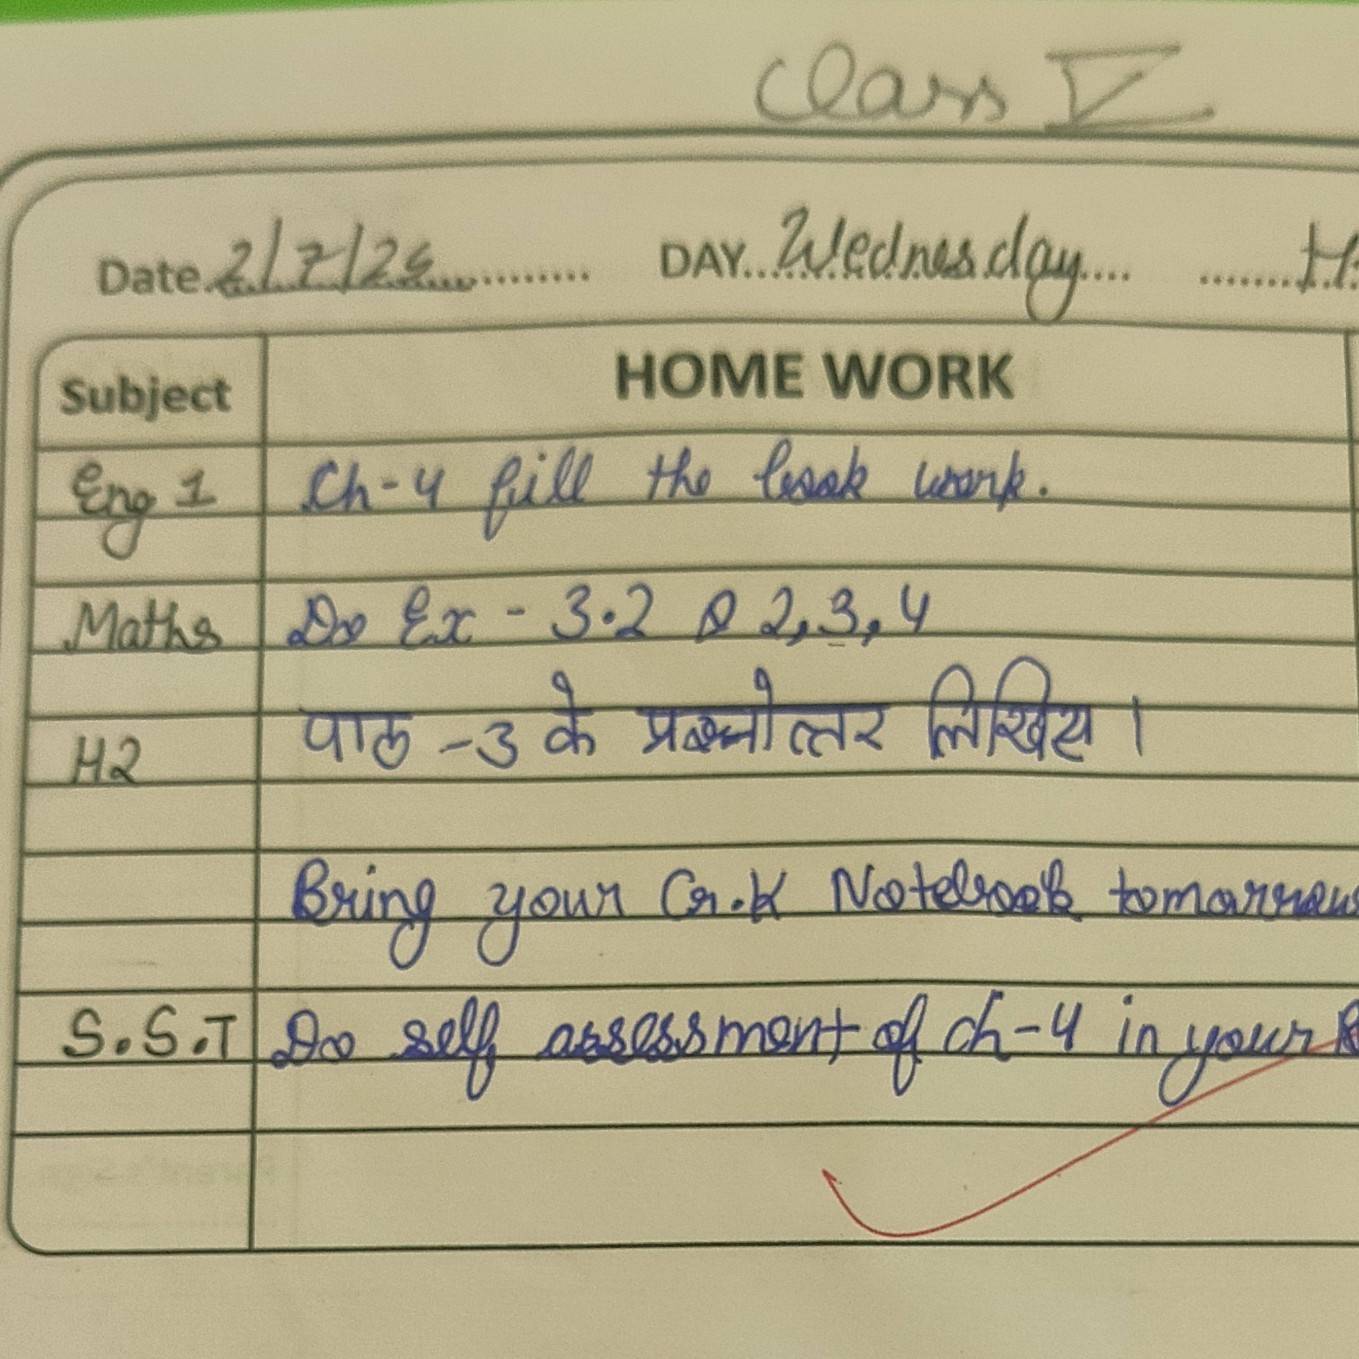 Class V
Date 2/7/25 DAY Wednesday
Subject HOME WORK
Eng 1 Ch-4 fill the book work.
Maths Do Ex - 3.2 Q 2, 3, 4
H2 पाठ -3 के प्रश्नोत्तर लिखिए।
Bring your G.K Notebook tomorrow
S.S.T Do self assessment of ch-4 in your